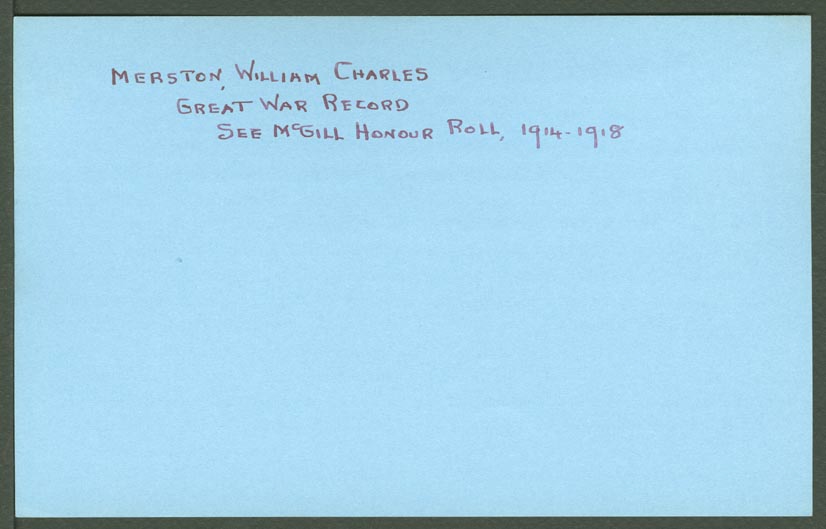 MERSTON, WILLIAM CHARLES
GREAT WAR RECORD
SEE McGILL HONOUR ROLL, 1914-1918